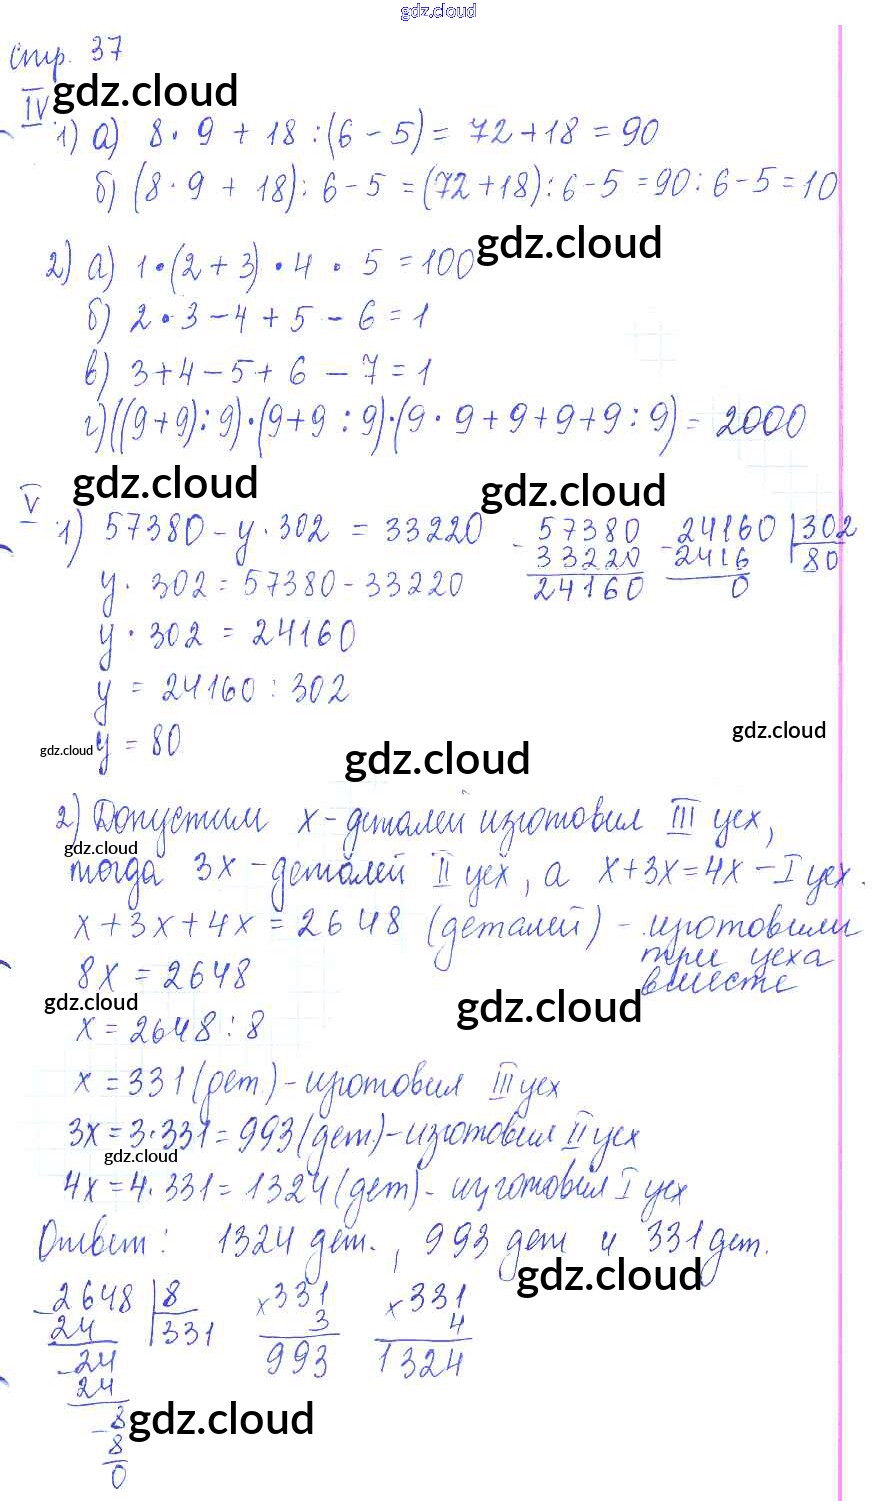 gdz.cloud
стр. 37
gdz.cloud
IV
1) а) 8 · 9 + 18 : (6 - 5) = 72 + 18 = 90
б) (8 · 9 + 18) : 6 - 5 = (72 + 18) : 6 - 5 = 90 : 6 - 5 = 10
gdz.cloud
2) а) 1 · (2 + 3) · 4 · 5 = 100
б) 2 · 3 - 4 + 5 - 6 = 1
в) 3 + 4 - 5 + 6 - 7 = 1
г) ((9 + 9) : 9) · (9 + 9 : 9) · (9 · 9 + 9 + 9 + 9 : 9) = 2000
gdz.cloud gdz.cloud
V
1) 57380 - y · 302 = 33220
y · 302 = 57380 - 33220
y · 302 = 24160
y = 24160 : 302
y = 80
- 57380
33220
24160
- 24160 | 302
2416 80
0
gdz.cloud
gdz.cloud
gdz.cloud
2) Допустим x - деталей изготовил III цех,
gdz.cloud
тогда 3x - деталей II цех, а x + 3x = 4x - I цех.
x + 3x + 4x = 2648 (деталей) - изготовили
три цеха
вместе
8x = 2648
gdz.cloud
gdz.cloud
x = 2648 : 8
x = 331 (дет.) - изготовил III цех
3x = 3 · 331 = 993 (дет.) - изготовил II цех
gdz.cloud
4x = 4 · 331 = 1324 (дет) - изготовил I цех
Ответ: 1324 дет., 993 дет и 331 дет.
gdz.cloud
- 2648 | 8
24 331
- 24
24
- 8
8
0
× 331
3
993
× 331
4
1324
gdz.cloud